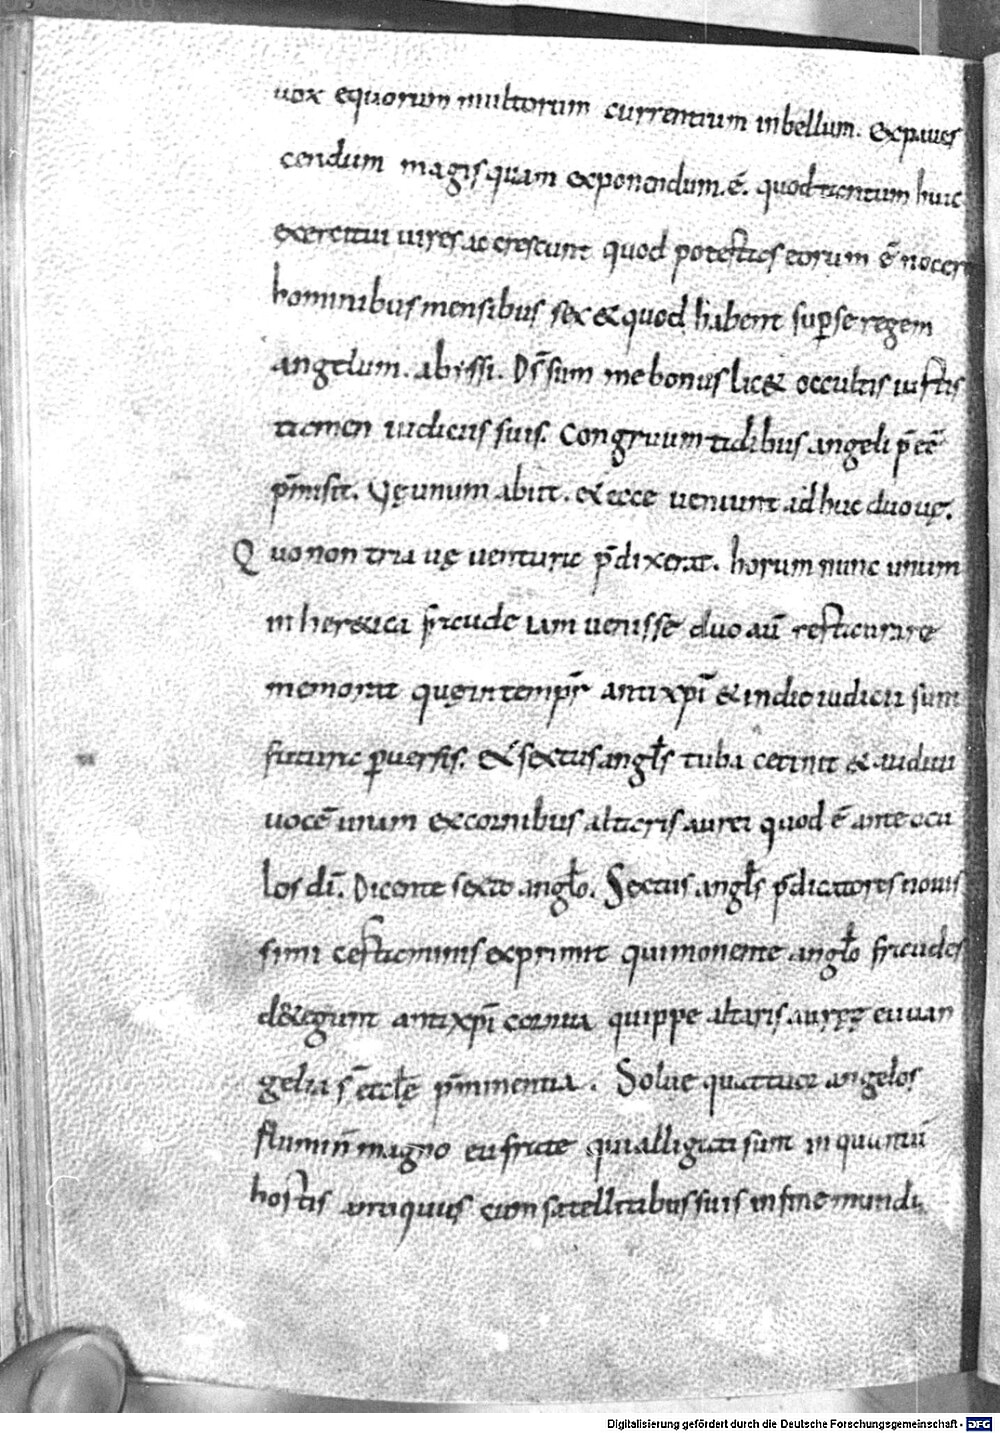 uox equorum multorum currentium in bellum. expaues
cendum magis quam exponendum. ē. quod tantum huic
exercitui uires ac crescunt quod potestas eorum ē nocere
hominibus mensibus sex & quod habent sup se regem
angelum. abyssi. Ds̄ summe bonus lic& occultis iustis
tamen iudiciis suis. Congruum talibus angelū p̄ee
p̄misit. Vę unum abiit. & ecce ueniunt adhuc duo uę.
Quonon tria uę uentura p̄dixerat. horum nunc unum
in her&ica fraude iam uenisse duo aū restaurare
memorat quę in tempr̄ antixpī & in die iudicii sunt
futura puersis. & sextus angl̄s tuba cecinit & audiui
uocē unam ex cornibus altaris aurei quod ē ante ocu
los dī. Dicente sexto anglo. Sextus angl̄s p̄dicatores nouis
simi certaminis exprimit qui monente anglo fraudes
d&egunt antixpī cornua quippe altaris aureę euuan
gelia s̄ ecclę p̄minentia. Solue quattuor angelos
flumin̄ magno eufrate qui alligati sunt in quantū
hostis antiquus cum satellitibus suis in fine mundi